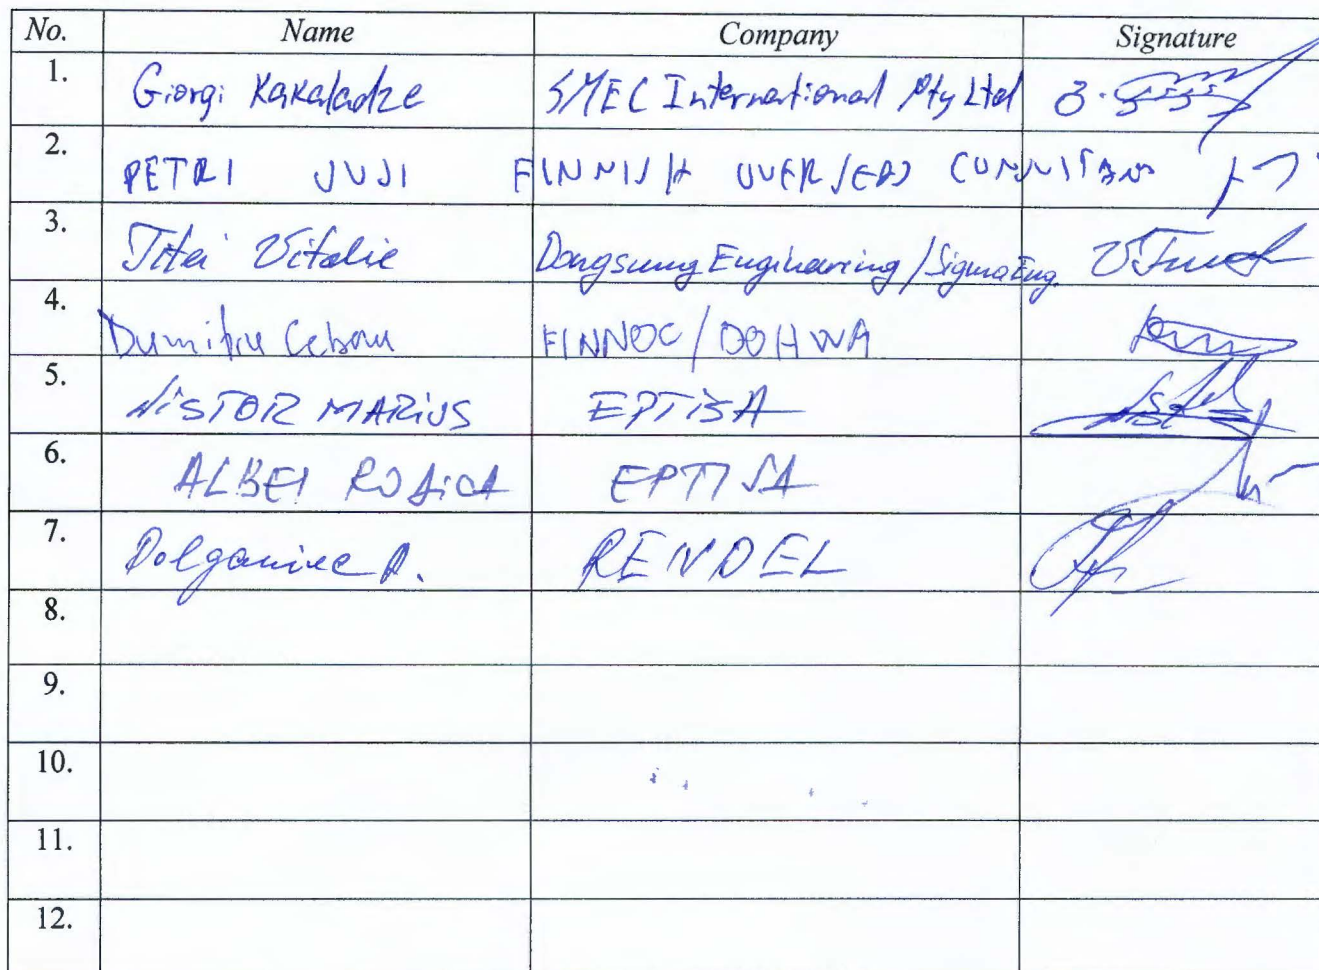 No. Name Company Signature
1. Giorgi Kakaladze SMEC International Pty Ltd
2. PETRI JUSI FINNISH OVERSEAS CONSULTANTS
3. Titei Vitalie Dongsung Engineering / Sigma Eng.
4. Dumitru Cebanu FINNOC / DOHWA
5. NISTOR MARIUS EPTISA
6. ALBEI RODICA EPTISA
7. RENDEL
8.
9.
10.
11.
12.